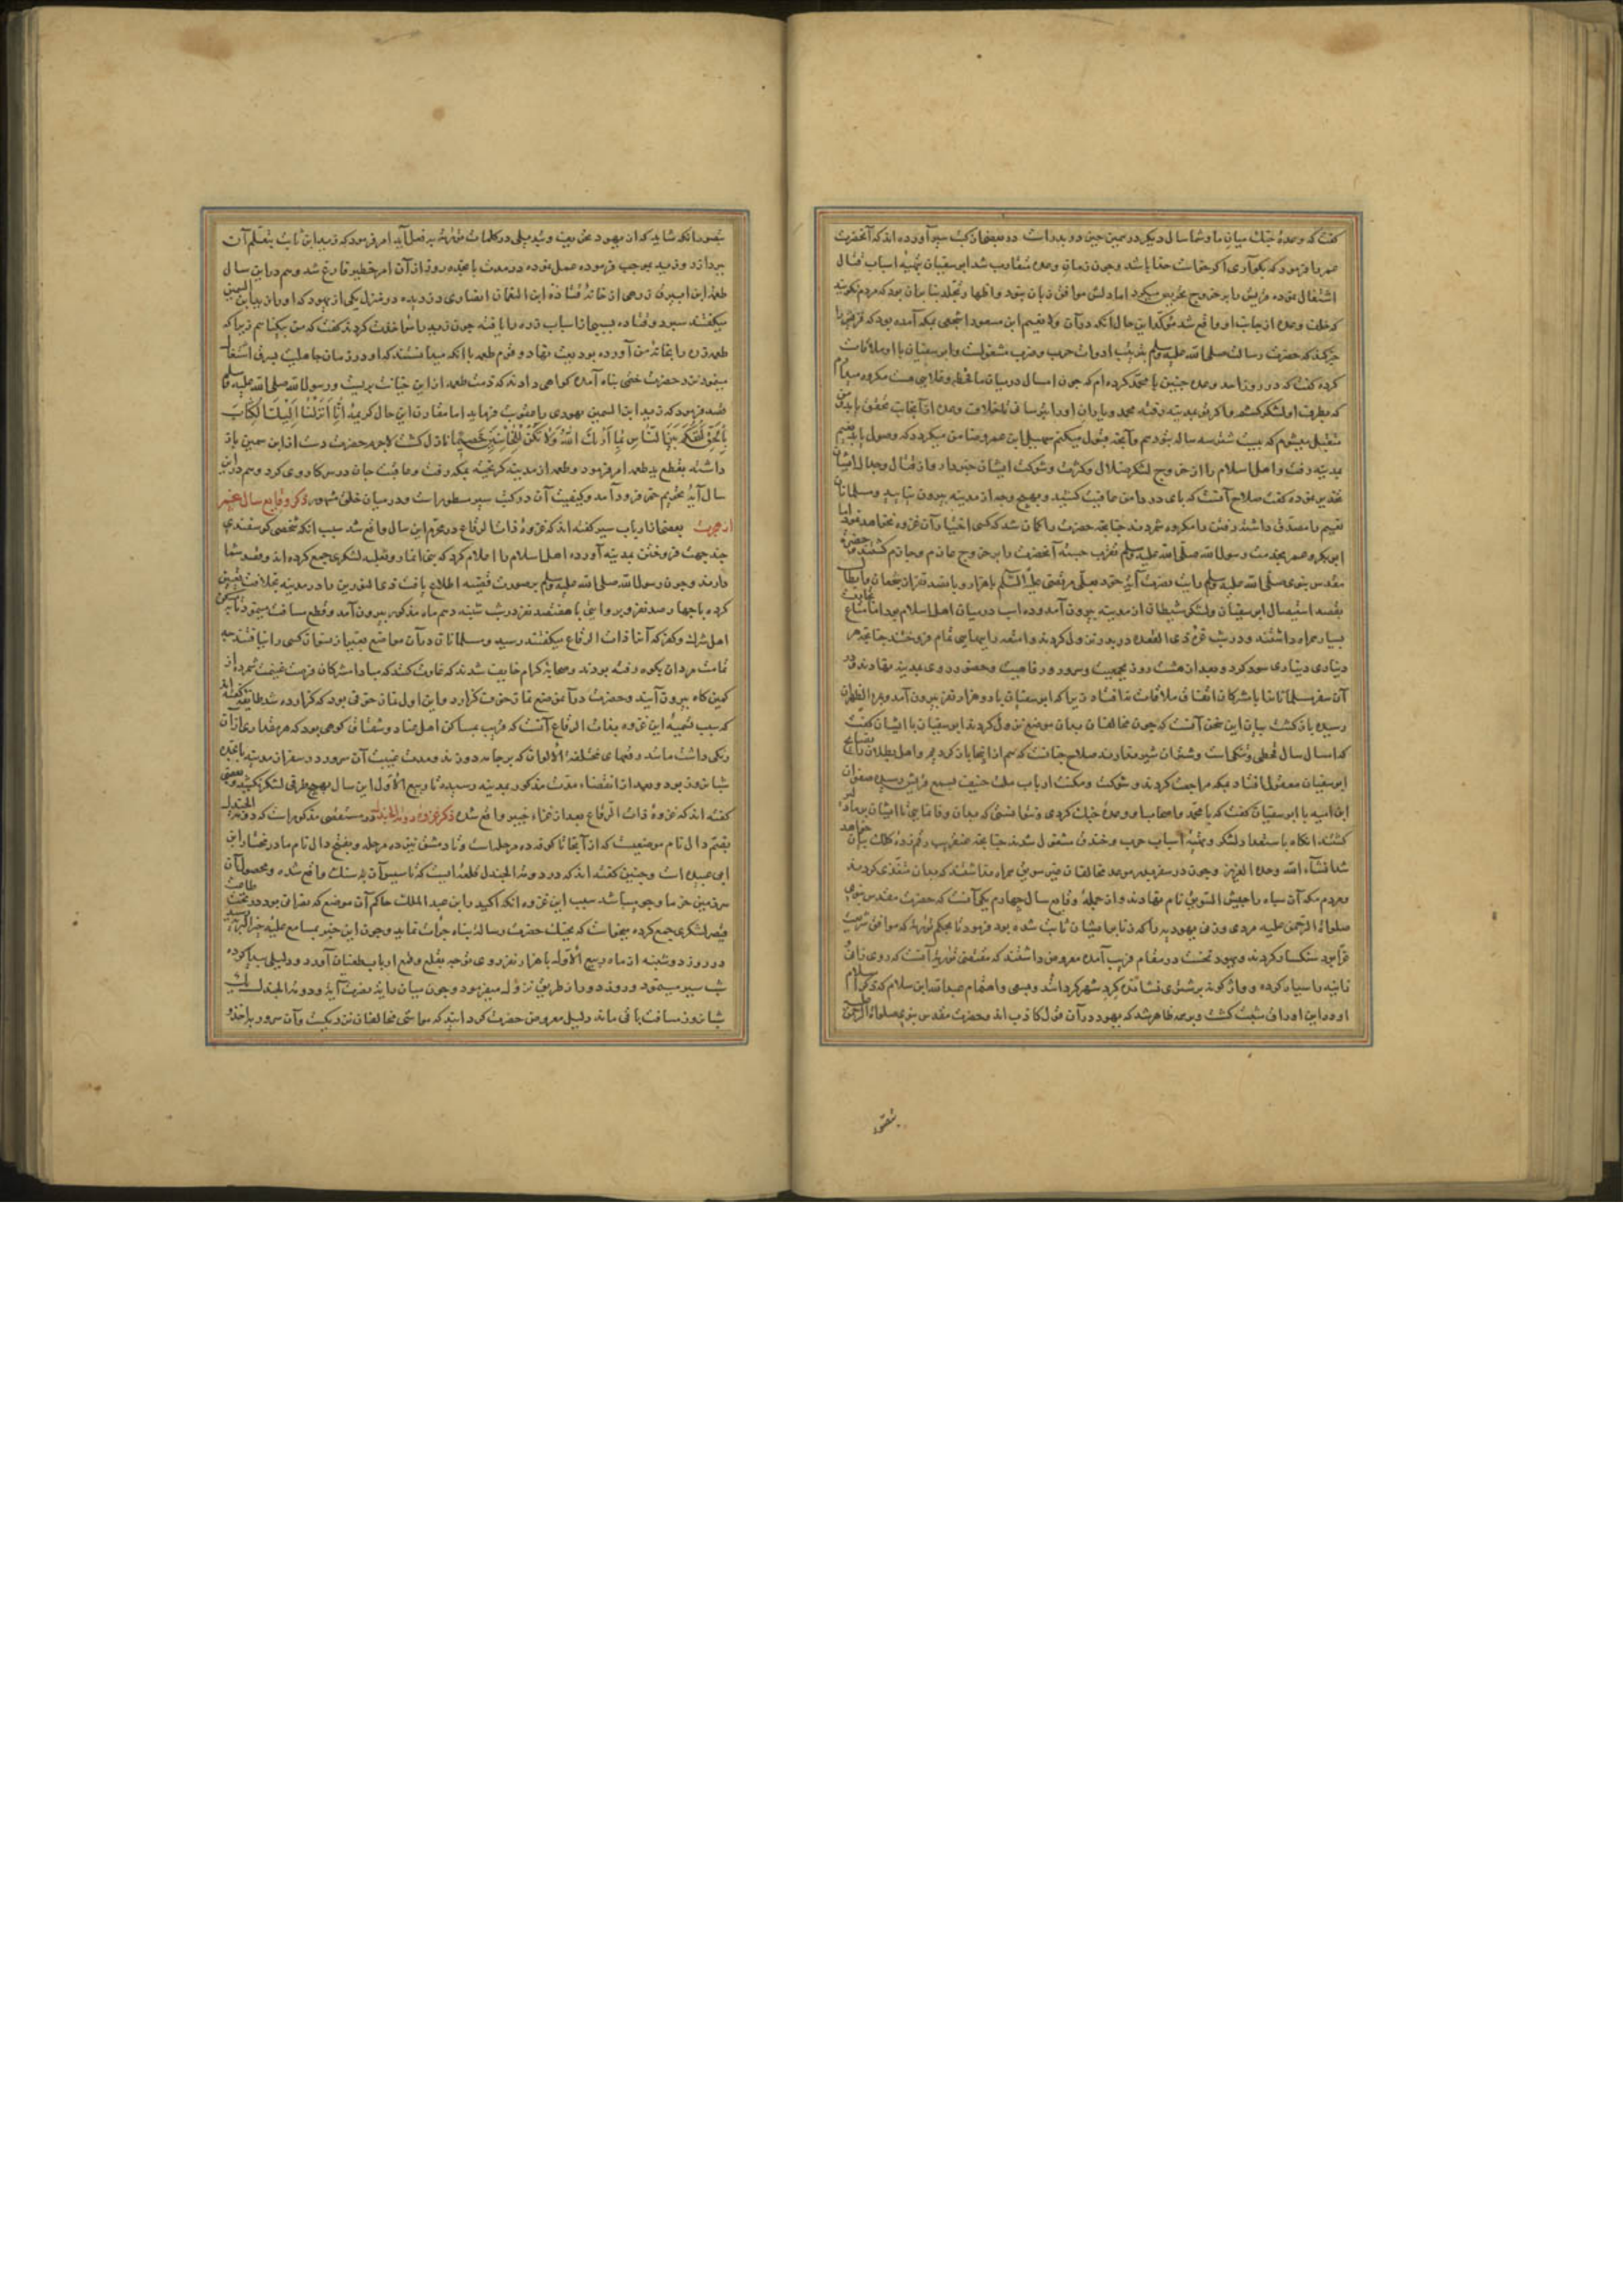 کفت که وعدهٔ جنك میان ما و شما سال دیکر در همین حین در بدر است در بعضی از کتب سیر آورده اند که آنحضرت
عمر را فرمود که بکو آری اکر خدا خواسته باشد و چون زمان وعده متقارب شد ابوسفیان بتهیهٔ اسباب قتال
اشتغال نموده قریش را بر خروج تحریص میکرد اما دلش موافق زبان نبود و اظهار تجلد بنا بران بود که مردم نکویند
که خلف وعده از جانب او واقع شد مؤکد این حال آنکه در آن ولا نعیم ابن مسعود اشجعی بمکه آمده بود که قریش را
خبر کند که حضرت رسالت صلی الله علیه وسلم بترتیب ادوات حرب و ضرب مشغولست و ابوسفیان با او ملاقات
کرده کفت که در روز احد وعده چنین با محمد کرده ام که چون امسال در میان ما قحط و غلایی هست مکروه میدارم
که بطرف او لشکر کشم و اکر تو بمدینه رفته محمد و یاران او را بترسانی تا خلاف وعده از آنجانب تحقق یابد من
متقبل میشوم که بیست شتر سه ساله بتو دهم و آنچه قبول میکنم سهیل ابن عمرو ضامن میکردد که وصول یابد نعیم
بمدینه رفت و اهل اسلام را از خروج لشکر ضلال و کثرت و شوکت ایشان خبر داد و از قتال و جدال ایشان
تحذیر نموده کفت صلاح آنست که پای در دامن عافیت کشید و بهیچ وجه از مدینه بیرون نیایید و مسلمانان
نعیم را مصدق داشته رفتن را مکروه شمردند چنانچه حضرت را کمان شد که کسی اختیار آن غزوه نخواهد نمود اما
ابوبکر و عمر بخدمت رسول الله صلی الله علیه وسلم تقرب جسته آنحضرت را بر خروج عازم و جازم کشتند و حضرت
مقدس نبوی صلی الله علیه وسلم رایت نصرت آیت خود بعلی مرتضی علیه السلم با هزار و پانصد نفر از شجعان و ابطال
بقصد استیصال ابوسفیان و لشکر شیطان از مدینه بیرون آمد و ده اسب در میان اهل اسلام بود اما متاع
بسیار همراه داشتند و در شب غرهٔ ذی القعده در بدر نزول کردند و امتعه را ببهای تمام فروختند چنانچه هر
دیناری دیناری سود کرد و بعد از هشت روز بجمعیت و سرور و رفاهیت و حضور روی بمدینه نهادند و در
آن سفر مسلمانان را با مشرکان اتفاق ملاقات نیافتاد زیرا که ابوسفیان با دو هزار نفر بیرون آمد و بمر الظهران
رسیده باز کشت بیان این سخن آنست که چون مخالفان بدان موضع نزول کردند ابوسفیان با ایشان کفت
که امسال سال قحطی و تنکی است و شتران شیر ندارند صلاح چنانست که هم از اینجا باز کردیم و اهل بطلان را
ابوسفیان معقول افتاد بمکه مراجعت کردند و شوکت و مکنت ارباب ملت حنیف بسمع قریش رسیده صفوان
ابن امیه با ابوسفیان کفت که با محمد و اصحاب او وعدهٔ جنك کردی و نتوانستی که بدان وفا نمایی تا ایشان بر ما دلیر
کشتند انکاه باستعداد لشکر و تهیهٔ اسباب حرب و خندق مشغول شدند چنانچه عنقریب رقم زدهٔ کلك بیان خواهد
شد انشآء الله وحده العزیز و چون در سفر بدر موعد مخالفان غیر سویق همراه نداشتند که بدان تغذی کردندی
مردم مکه آن سپاه را جیش السویق نام نهادند و از جملهٔ وقایع سال چهارم یکی آنست که حضرت مقدس نبوی
صلواة الرحمن علیه مردی و زنی یهودیه را که زنا بر ایشان ثابت شده بود فرمود تا بحکم توریة که موافق شریعت
غرا بود سنکسار کردند و یهود نخست در مقام فریب آمده معروض داشتند که مقتضی توریة آنست که روی زانی و
زانیه را سیاه کرده و واژکونه بر شتری نشانده کرد شهر کردانند و بسعی و اهتمام عبدالله ابن سلام که ذکر اسلام
او در این اوراق مثبت کشت و بوعد ظاهر شد که یهود در آن قول کاذب اند و حضرت مقدس نبوی صلواة الرحمن علیه
بتصور
بتصور انکه شاید که از یهود تحریف و تبدیلی در کلمات توریة بفعل آید امر فرمود که زید ابن ثابت بتعلم آن
پردازد و زید بموجب فرموده عمل نموده در مدت پانزده روز از آن امر خطیر فارغ شد و هم در این سال
طعمه ابن ابیرق زرهی از خانهٔ قتادة ابن النعمان انصاری دزدیده در منزل یکی از یهود که او را زید ابن السمین
میکفتند سپرد و قتاده زره را یافته چون زید را مؤاخذت کردند کفت که من بیکناهم زیرا که
طعمه زره را بخانهٔ من آورده بودیعت نهاد و قوم طعمه با انکه میدانستند که او در زمان جاهلیت بسرقه اشتغال
مینمود نزد حضرت ختمی پناه آمده کواهی دادند که ذمت طعمه از این خیانت بریست و رسول الله صلی الله علیه وسلم
قصد فرمود که زید ابن السمین یهودی را عقوبت فرماید اما مقارن این حال کریمهٔ اِنَّا اَنْزَلْنَا اِلَیْكَ الْكِتَابَ
بِالْحَقِّ لِتَحْكُمَ بَیْنَ النَّاسِ بِمَا اَرٰیكَ اللّٰهُ وَلَا تَكُنْ لِلْخَائِنِینَ خَصِیمًا نازل کشت لاجرم حضرت دست از ابن سمین باز
داشته بقطع ید طعمه امر فرمود و طعمه از مدینه کریخته بمکه رفت و عاقبت جان در سر کار دزدی کرد و هم در این
سال آیهٔ تحریم خمر فرود آمد و کیفیت آن در کتب سیر مسطور است و در میان خلق مشهور ذکر وقایع سال پنجم
از هجرت بعضی از ارباب سیر کفته اند که غزوهٔ ذات الرقاع در محرم این سال واقع شد سبب انکه شخصی کوسفندی
چند جهت فروختن بمدینه آورده اهل اسلام را اعلام کرد که بنی انمار و ثعلبه لشکری جمع کرده اند و قصد شما
دارند و چون رسول الله صلی الله علیه وسلم بر صورت قضیه اطلاع یافت ذی النورین را در مدینه بخلافت تعیین
کرده با چهار صد نفر و بروایتی با هفتصد نفر در شب شنبه دهم ماه مذکور بیرون آمد و قطع مسافت مینمود تا بمسکن
اهل شرك و کفر که آنرا ذات الرقاع میکفتند رسید و مسلمانان در آن مواضع بغیر از نسوان کسی را نیافتند چه
تمامت مردان بکوه رفته بودند و صحابهٔ کرام خایف شدند که غارت کنند که مبادا مشرکان فرصت غنیمت شمرده از
کمین کاه بیرون آیند و حضرت در آن موضع نماز خوف کزارد و این اول نماز خوفی بود که کزارده شد طایفه کفته اند
که سبب تسمیهٔ این غزوه بذات الرقاع آنست که قریب بمساکن اهل عناد و شقاق کوهی بود که هر مقداری از آن
رنکی داشت مانند رقعهای مختلفة الالوان که بر جامه دوزند و مدت غیبت آن سرور در سفر از مدینه پانزده
شبانروز بود و بعد از انقضاء مدت مذکور بمدینه رسیده تا ربیع الاول این سال بهیچ طرفی لشکر نکشید و بعضی
کفته اند که غزوهٔ ذات الرقاع بعد از غزاء خیبر واقع شده ذکر غزوهٔ دومة الجندل در مستقصی مذکور است که دومة الجندل
بضم دال نام موضعیست که از آنجا تا کوفه ده مرحله است و تا دمشق نیز ده مرحله و بفتح دال نام مادر مختار ابن
ابی عبیده است و چنین کفته اند که در دومة الجندل قلعه ایست که تاسیس آن بر سنك واقع شده و محصول آن
سرزمین خرما و جو میباشد سبب این غزوه انکه اکیدر ابن عبد الملك حاکم آن موضع که نصرانی بود و در تحت طاعت
قیصر لشکری جمع کرده میخواست که بجنك حضرت رسالت پناه جرأت نماید و چون این خبر بمسامع علیه خیر البریه رسید
در روز دوشنبه از ماه ربیع الاول با هزار نفر روی توجه بقلع و قمع ارباب طغیان آورد و دلیلی پیدا کرده
شب سیر مینمود و روز در راز طریق نزول میفرمود و چون میان رایة نصرت آیة و دومة الجندل یك
شبانروز مسافت باقی ماند دلیل معروض حضرت کردانید که مواشی مخالفان نزدیکست و آن سرور باخذ